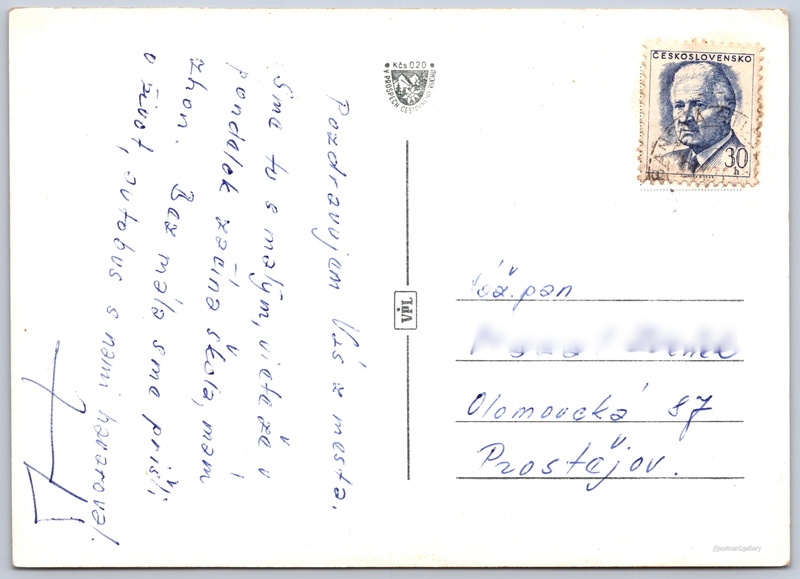 Pozdravujem Vás z mesta.
Sme tu s malým, viete že v
pondelok začína škola, mám
zhon. Bez mála sme prišli
o život, autobus s nami havaroval.
Kčs 0,20
V PROSPĚCH CESTOVNÍHO RUCHU
ČESKOSLOVENSKO
30
h
Váž. pan
Olomoucká 87
Prostějov.
postcard.gallery